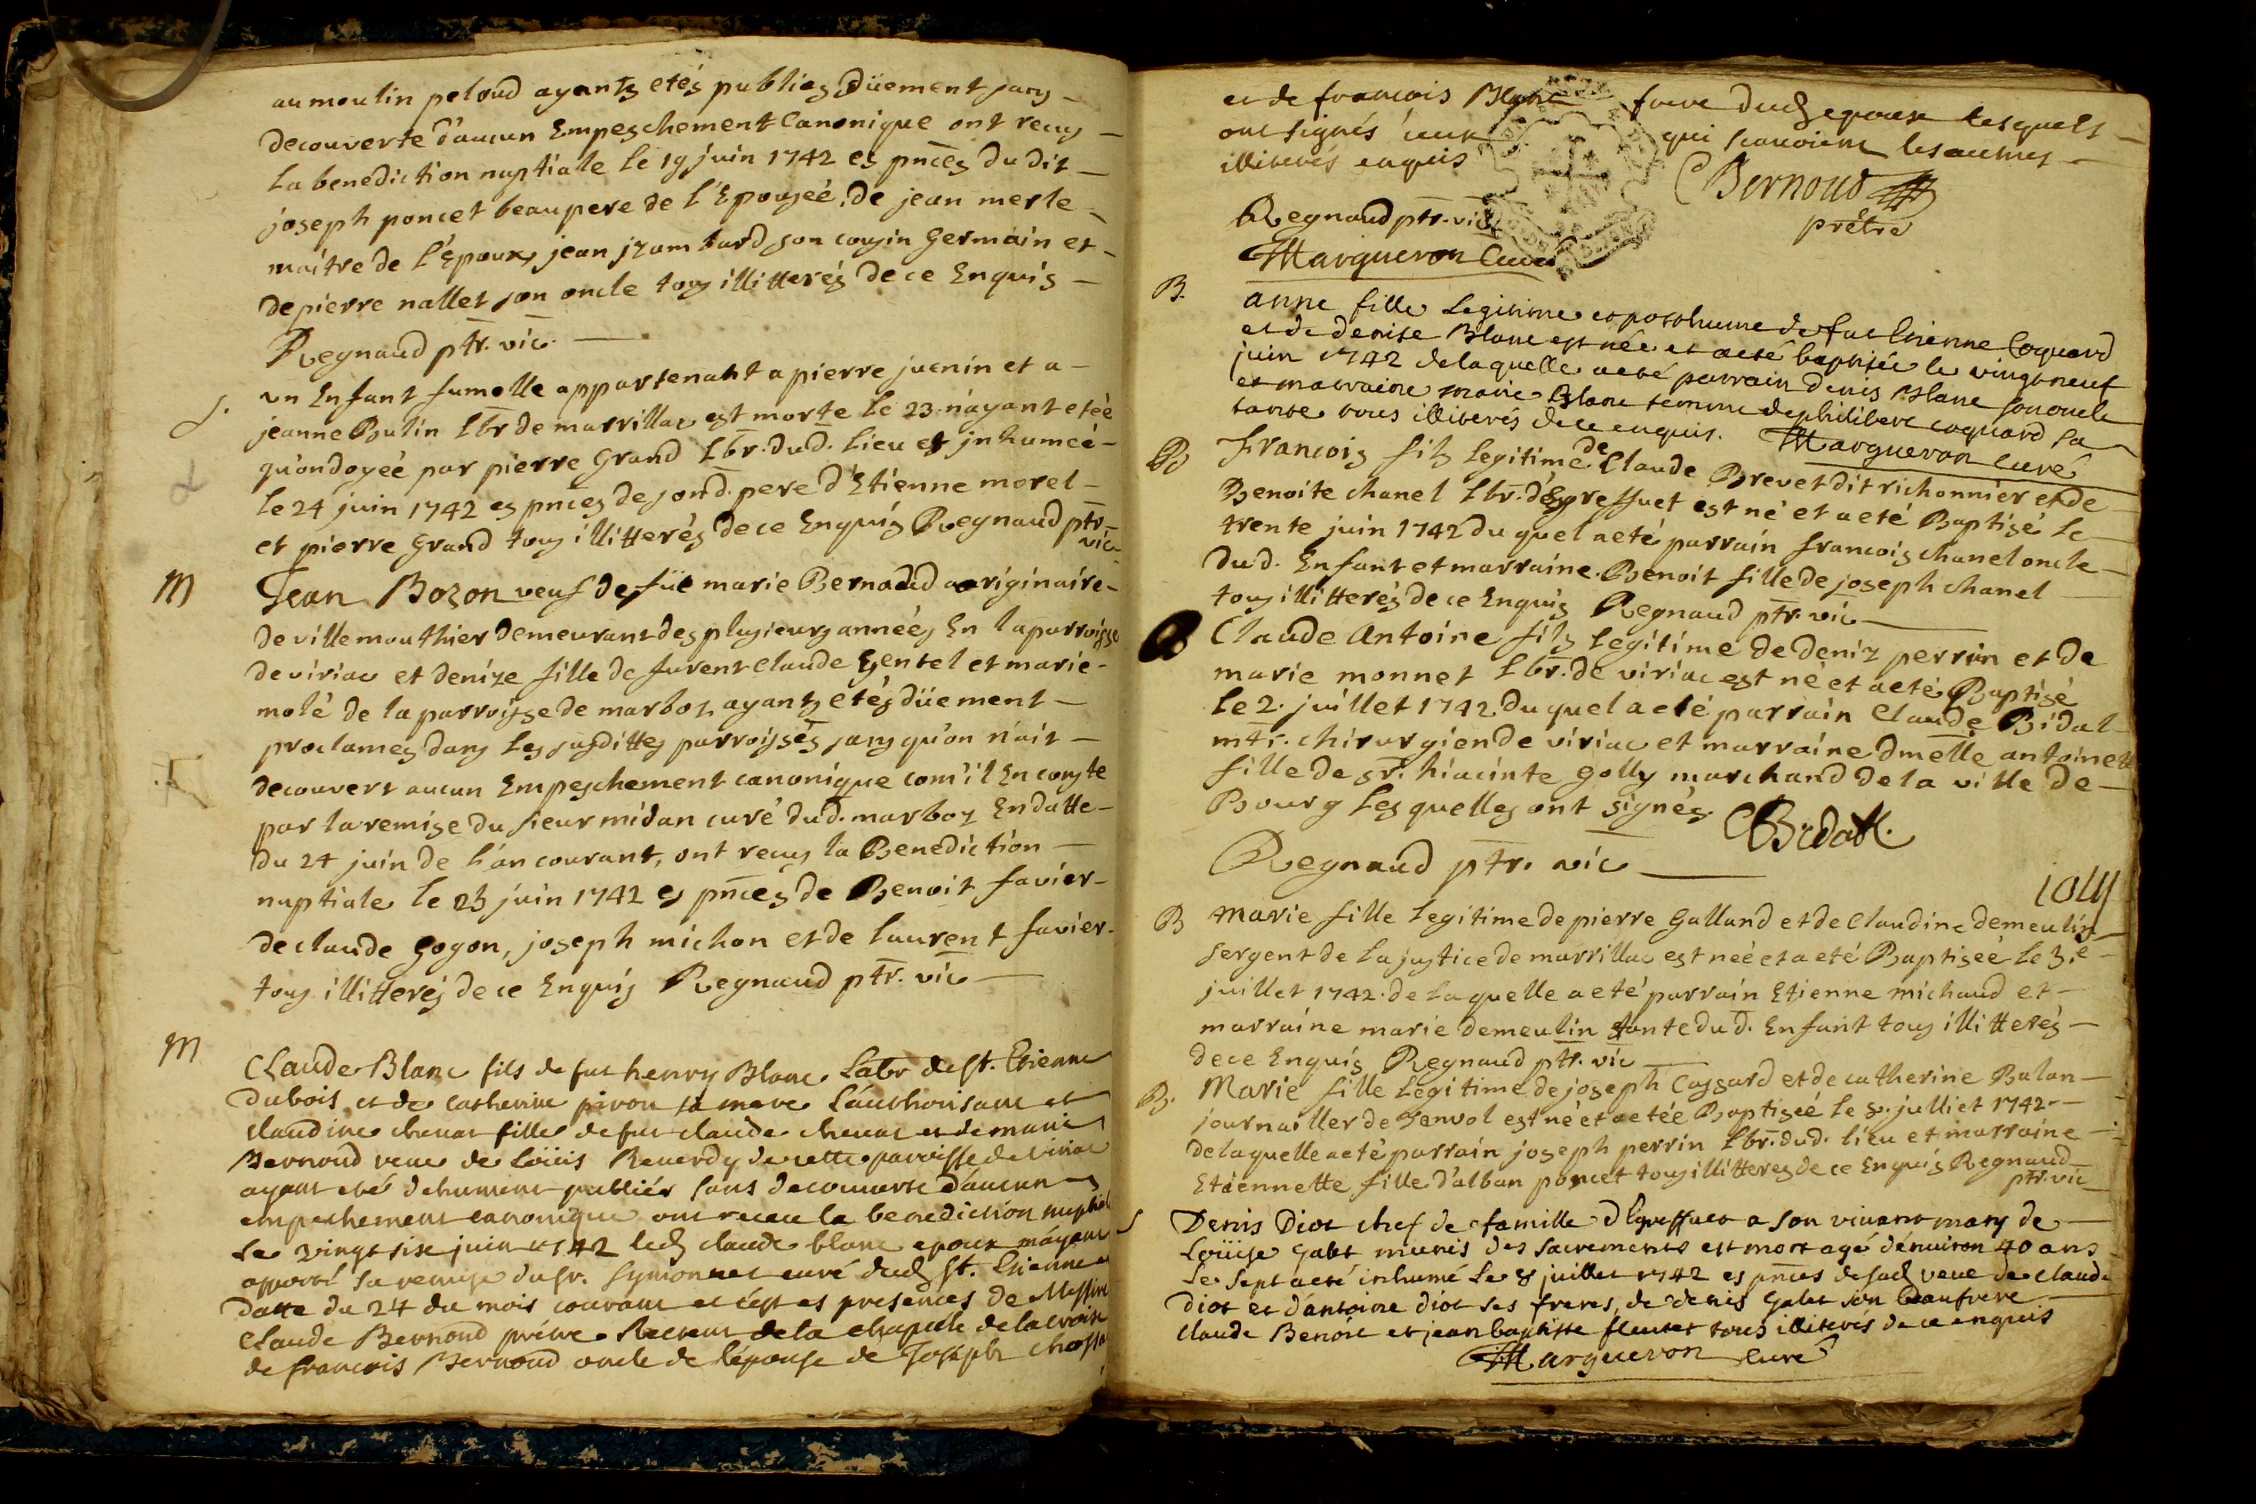 au moulin peloud ayants etés publiés düement sans
decouverte d'aucun Empeschement Canonique ont reçus
la benediction nuptiale le 19 juin 1742 es pnces du dit
joseph poncet beaupere de l'Epouseé, de jean merle
maitre de l'Epoux, jean jzambard son cousin Germain et
de pierre nallet son oncle tous illitterés de ce Enquis
Regnaud ptr. vic.
S. un Enfant fumelle appartenant a pierre juenin et a
jeanne Bulin Lbr de marrillac est morte le 23 n'ayant etée
qu'ondoyeé par pierre Grand Lbr. dud. lieu et jnhumeé
le 24 juin 1742 es pnces de sond. pere d'Etienne morel
et pierre Grand tous illitterés de ce Enquis Regnaud ptr.
vic
M Jean Bozon veuf de füe marie Bernadd originaire
de villemouthier demeurant des plusieurs années En la parroisse
de viriac et denize fille de furent Claude Gentel et marie
molé de la parroisse de marboz ayants etés düement
proclamés dans les susdittes parroisses sans qu'on n'ait
decouvert aucun Empeschement canonique com'il En conste
par la remise du sieur midan curé dud. marboz En datte
du 24 juin de l'an courant, ont reçus la Benediction
nuptiale le 25 juin 1742 es pnces de Benoit favier
de claude Goyon, joseph michon et de laurent favier
tous illitterés de ce Enquis Regnaud ptr. vic
M Claude Blanc fils de fut henry Blanc Labr de St. Etienne
dubois et de Catherine pivon sa mere L'authorisant et
claudine chenat fille de fut claude chenat et de marie
Bernoud veuve de Loüis Reverdy de cette paroisse de viriac
ayant eté dehument publiés sans decouverte d'aucun
empechement canonique ont receu la benediction nuptiale
le vingt sixe juin 1742 led claude blanc epoux m'ayant
apporté sa remise du Sr. Symonnet curé dud St. Etienne en
datte du 24 du mois courant et c'est es presences de Messire
Claude Bernoud prêtre Recteur de la chapele de la croix
de francois Bernoud oncle de l'épouse de Joseph
et de francois Blanc frere dud epoux lesquels
ont signés ceux qui scavoient les autres
illiterés enquis
CBernoud
prêtre
Regnaud ptr. vic
Margueron Curé
B. anne fille Legitime et posthume de fut Etienne Coquard
et de denise Blanc est neé et aeté baptisée le vingt neuf
juin 1742 delaquelle aeté parrain denis Blanc son oncle
et marraine marie Blanc femme de philibert coquard sa
tante tous illiterés de ce enquis. Margueron Curé
B francois fils legitime de Claude Brevet dit richonnier et de
Benoite chanel Lbr. d'Egreffuet est né et aeté Baptisé le
trente juin 1742 du quel aeté parrain francois chanel oncle
dud. Enfant et marraine Benoit fille de joseph chanel
tous illitterés de ce Enquis Regnaud ptr. vic
B Claude Antoine fils legitime de deniz perrin et de
marie monnet Lbr. de viriac est né et aeté Baptisé
le 2. juillet 1742 du quel aeté parrain Claude Bidal
mtr. chirurgien de viriac et marraine dmelle antoinette
fille de sr. hiacinte Golly marchand de la ville de
Bourg lesquelles ont signés.
CBidall
Regnaud ptr. vic
joly
B marie fille legitime de pierre Galland et de Claudine demeulin
sergent de la justice de marrillac est neé et aeté Baptiseé le 3.e
juillet 1742. de laquelle aeté parrain Etienne michaud et
marraine marie demeulin tante dud. Enfant tous illitterés
de ce Enquis Regnaud ptr. vic
B. Marie fille legitime de joseph Cassard et de catherine Balan
journaillier de né et aetée Baptiseé le 5. julliet 1742
de laquelle aeté parrain joseph perrin Lbr. dud. lieu et marraine
Etiennette fille d'alban poncet tous illitteres de ce Enquis Regnaud
ptr. vic
S Denis Diot chef de famille d'Egreffuet a son vivant mary de
Loüise Gabet munis des sacrements est mort agé d'environ 40 ans
le sept aeté inhumé le 8 juillet 1742 es pnces de sad veuve de claude
diot et d'antoine diot ses freres, de denis Gabet son beaufrere
claude Benoit et jean baptiste fleuret tous illiterés de ce enquis
Margueron curé